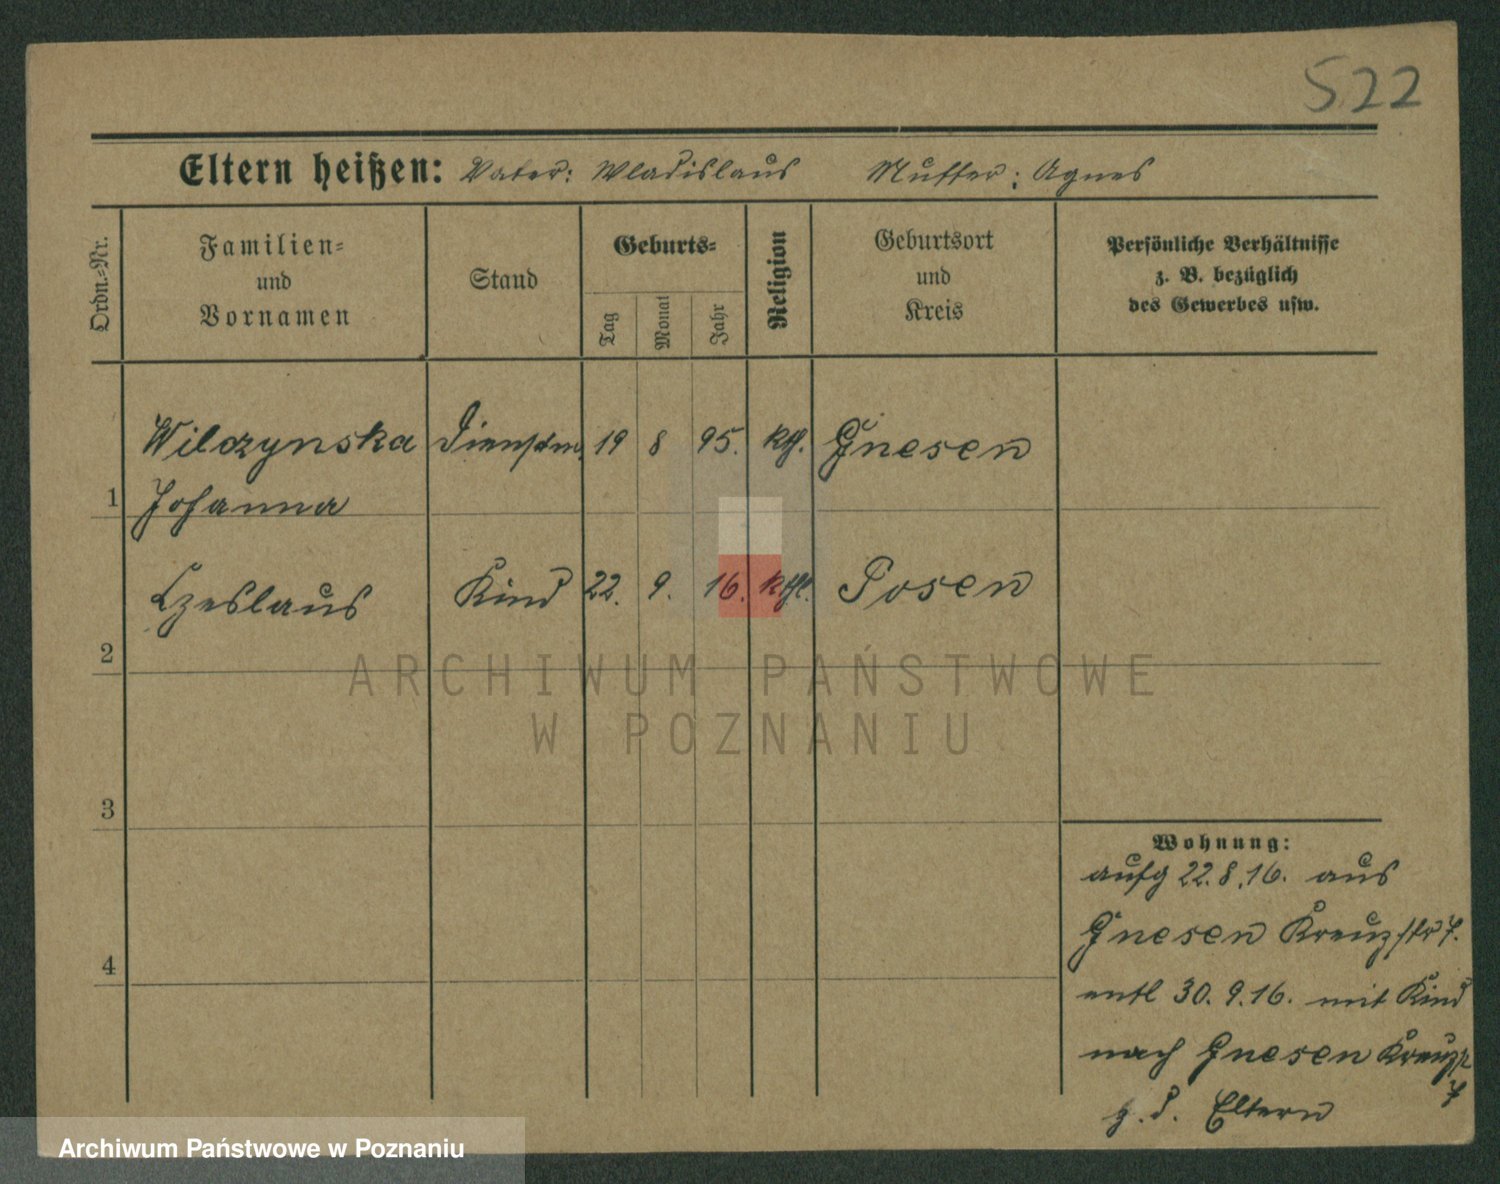 522
Eltern heißen: Vater: Wladislaus Mutter: Agnes
Ordn.-Nr.
Familien- und Vornamen
Stand
Geburts-
Tag
Monat
Jahr
Religion
Geburtsort und Kreis
Persönliche Verhältnisse
z. B. bezüglich
des Gewerbes usw.
Wilczynska Dienstm. 19 8 95. kth. Gnesen
1 Johanna
Czeslaus Kind 22. 9. 16. kthl. Posen
2
3
4
Wohnung:
aufg 22.8.16. aus
Gnesen Kreuzstr 7.
entl 30.9.16. mit Kind
nach Gnesen Kreuzstr
7
z. d. Eltern
ARCHIWUM PAŃSTWOWE
W POZNANIU
Archiwum Państwowe w Poznaniu